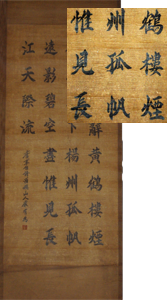 辭黃鶴樓煙
下揚州孤帆
遠影碧空盡惟見長
江天際流
鶴樓煙
州孤帆
惟見長